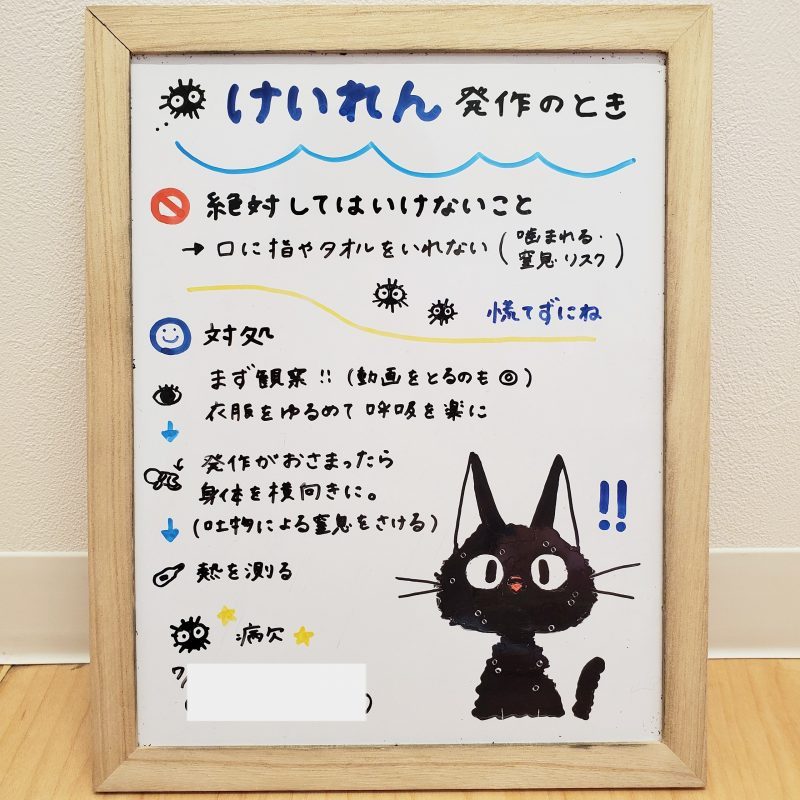 けいれん 発作のとき
絶対してはいけないこと
→ 口に指やタオルをいれない (噛まれる・
窒息リスク)
慌てずにね
対処
まず観察!! (動画をとるのも◎)
衣服をゆるめて呼吸を楽に
発作がおさまったら
身体を横向きに。
(吐物による窒息をさける)
!!
熱を測る
病欠
7/